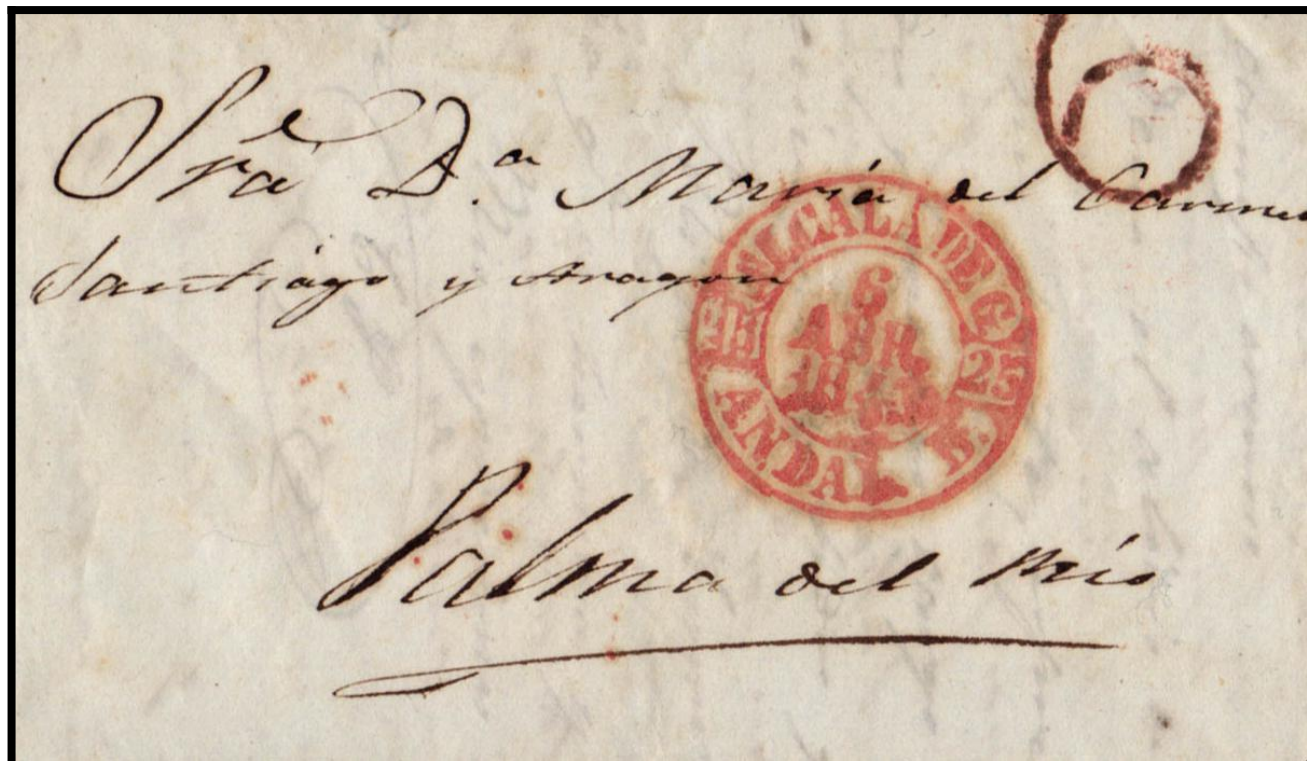 6
Sra D.a María del Carmen
Santiago y Aragon
ALCALA DE G.
25
6
ABR.
25
ANDAL B.
Palma del Rio